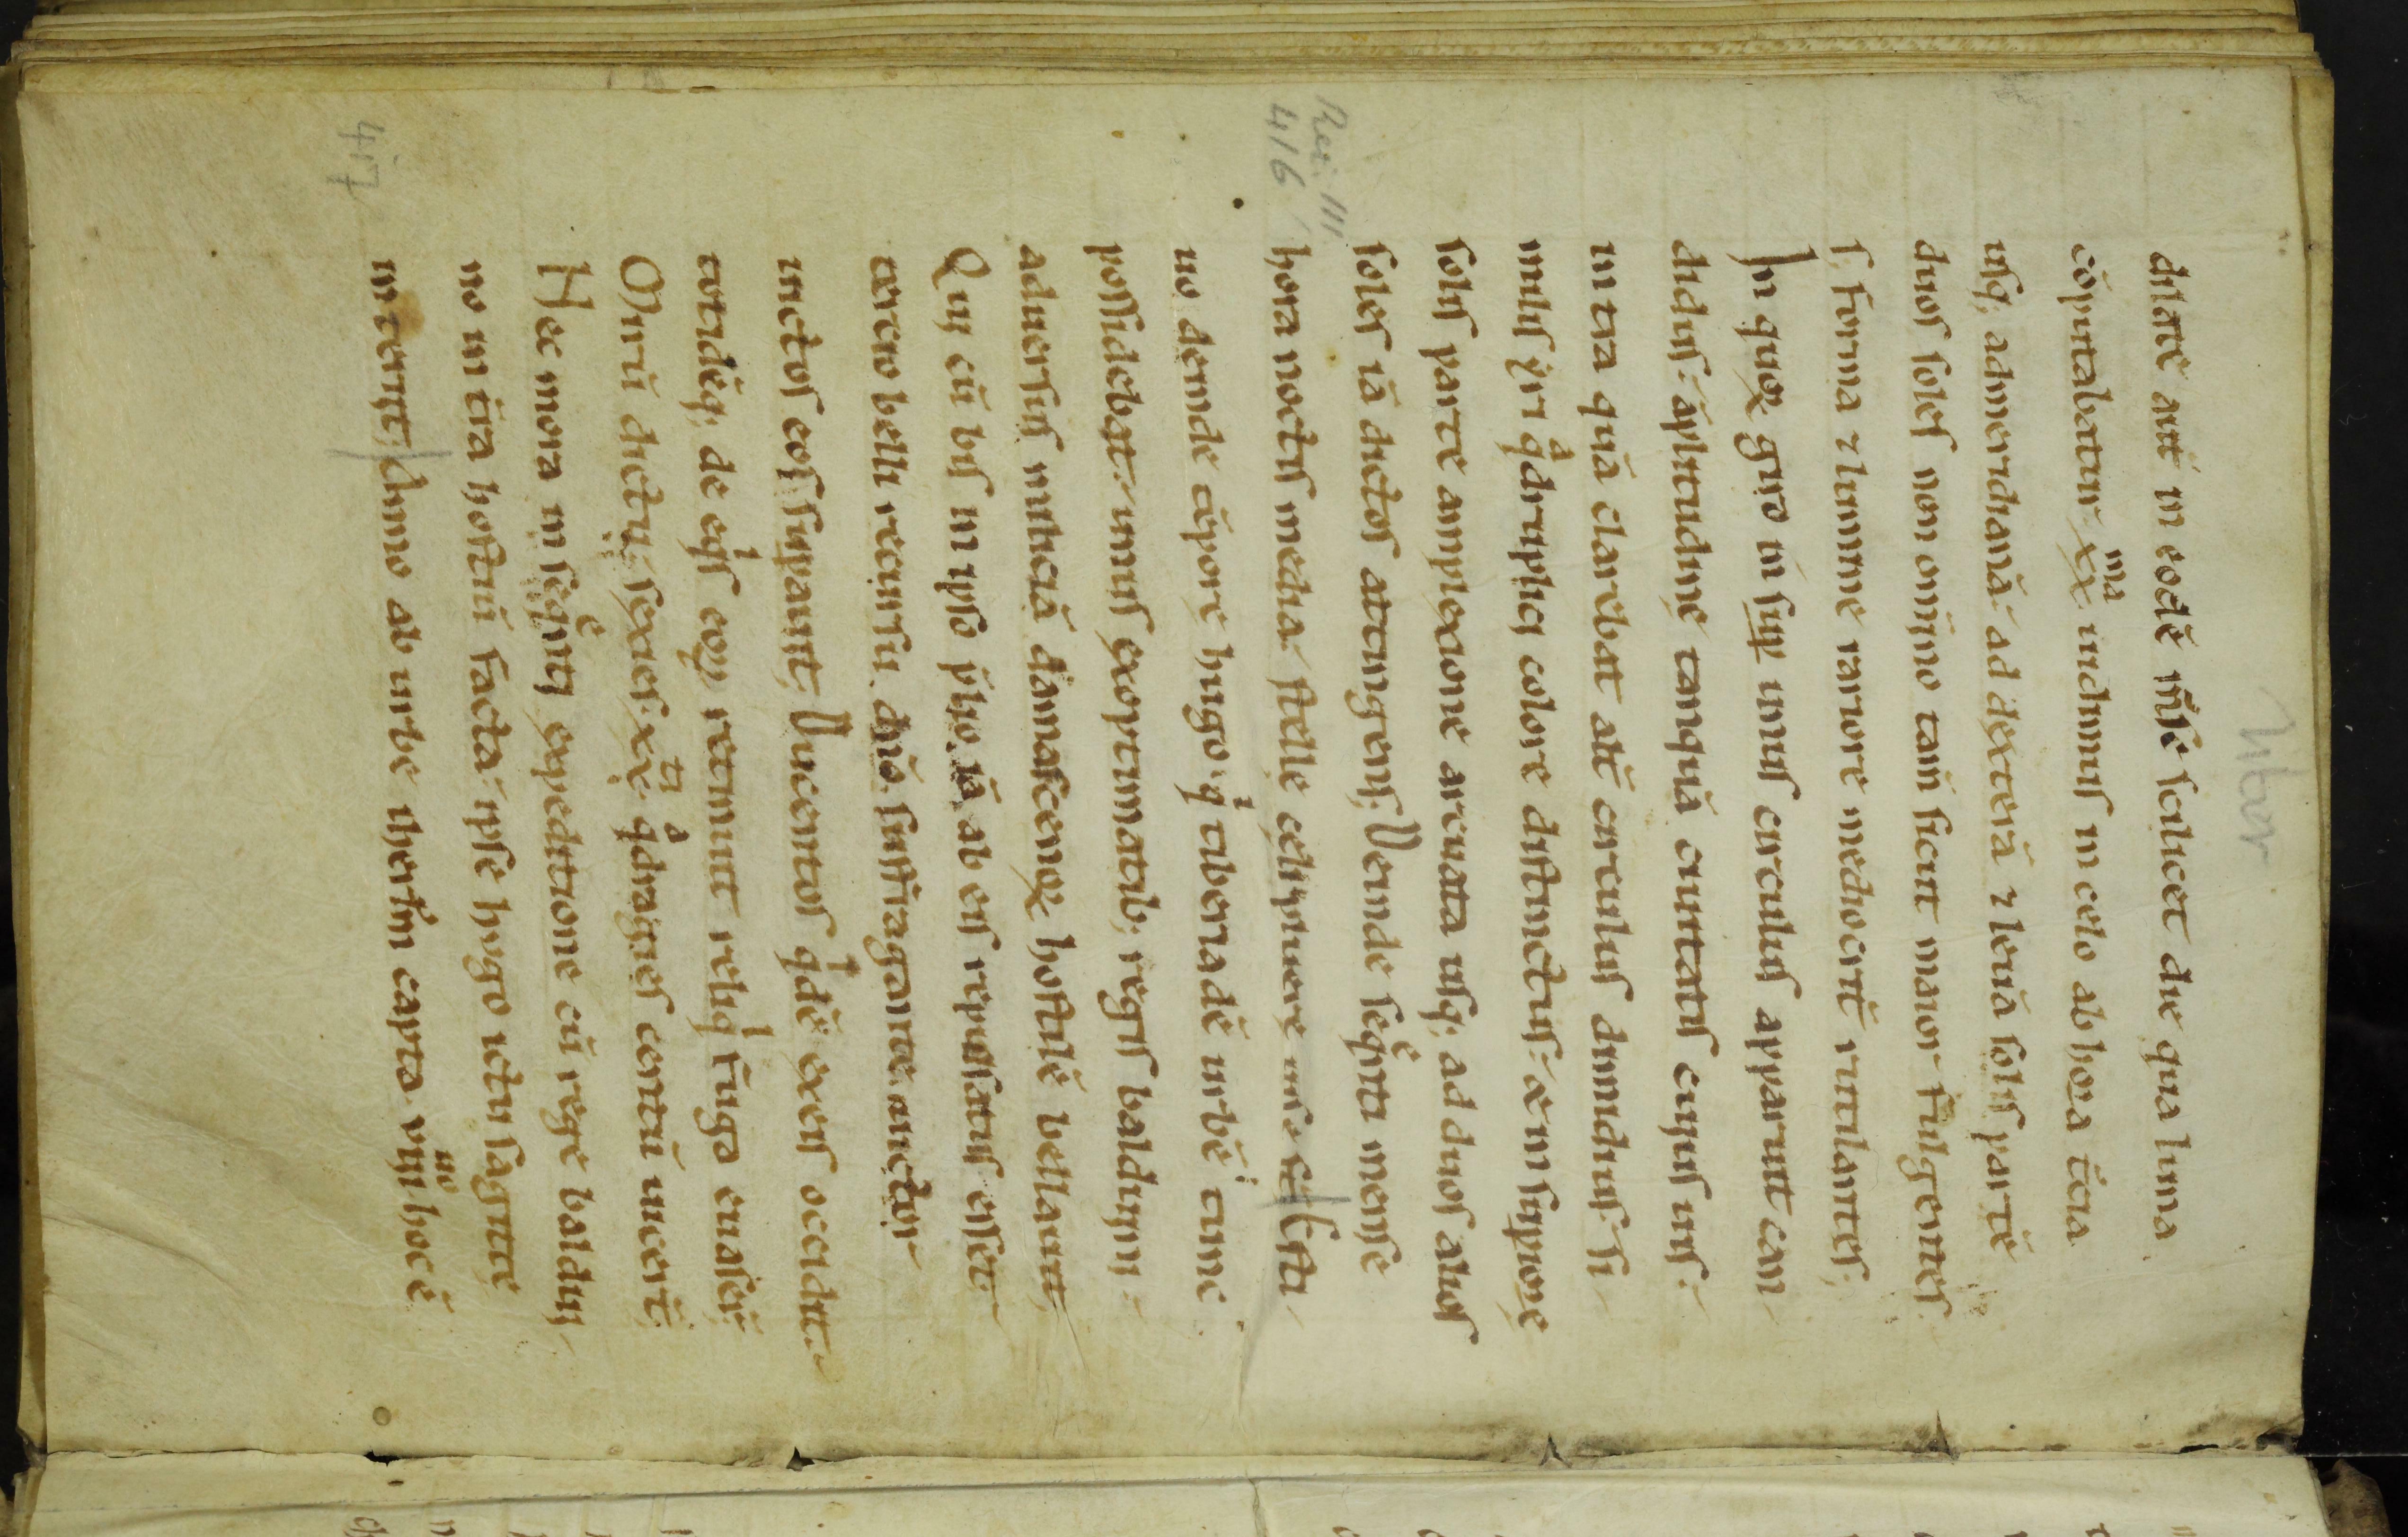 liber
dilatẽ aũt in eodẽ m̃se scilicet die qua luna
cõputabatur xx^ma uidimus in celo ab hora t̃cia
usq; ad meridianã ad dexterã ⁊ leuã solis partẽ
duos soles non om̃ino tam̃ sicut maior fulgentes
s; forma ⁊ lumine rariore mediocrit̃ rutilantes;
In quoꝝ giro in sup unus circulus apparuit can-
didus: ãplitudine tanquã ciuitatis cuiusuis:
intra quã clarebat alt̃ circulus dimidius: si-
milis yri q^adruplici colore distinctus: & in supiore
solis parte amplexione arcuata usq; ad duos alios
soles iã dictos attingens; Deinde seq^enti mense
hora noctis media stelle celi pluere uise s̃t Esti-
uo deinde tẽpore hugo q^i tiberiadẽ urbẽ tunc
possidebat: unus ex optimatib; regis balduini:
aduersus militiã damascenoꝝ hostilẽ bellauit;
Qui cũ bis in ipso p̃lio iã ab eis repulsatus esset
tercio belli recursu dño suffragante. uictor
uictos eos supauit; Ducentos q^idẽ ex eis occidit
totidẽq; de eq^is eoꝝ retinuit reliq^i fuga euaserũt
Mirũ dictu: sexies xx^ti q^adragies centũ uicerũt
Nec mora in seq^enti expeditione cũ rege baldui-
no intra hostiũ facta: ipse hugo ictu sagitte
interiit; Anno ab urbe iherl̃m capta viii^uo hoc ẽ
Rec. III.
416
417